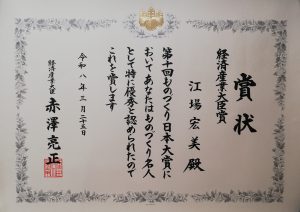 賞状
経済産業大臣賞
江場宏美殿
第十回ものづくり日本大賞に
おいてあなたはものづくり名人
として特に優秀と認められたので
これを賞します
令和八年三月二十五日
経済産業大臣
赤澤亮正